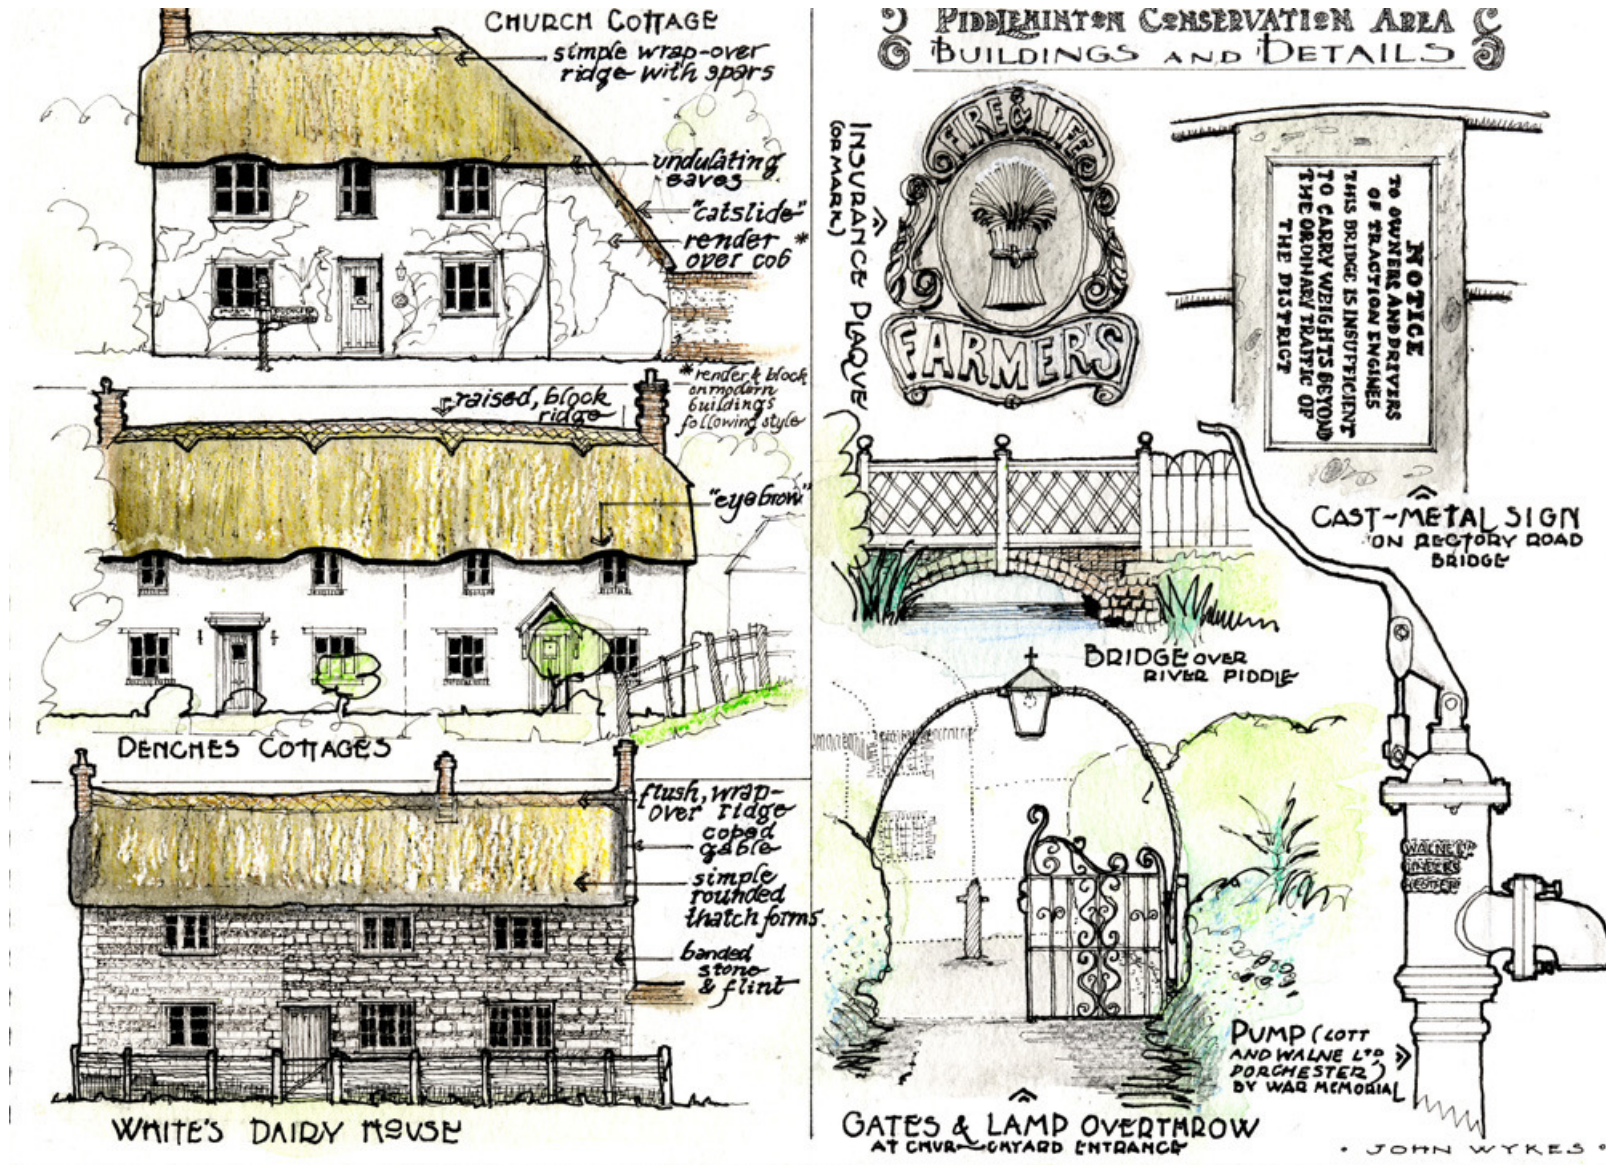 CHURCH COTTAGE
simple wrap-over
ridge with spars
undulating
eaves
"catslide"
render *
over cob
* render & block
on modern
buildings
following style
raised, block
ridge
"eyebrow"
DENCHES COTTAGES
flush, wrap-
over ridge
coped
gable
simple
rounded
thatch forms
banded
stone
& flint
WHITE'S DAIRY HOUSE
PIDDLEHINTON CONSERVATION AREA
BUILDINGS AND DETAILS
INSURANCE PLAQUE
(OR MARK)
FIRE & LIFE
FARMERS
NOTICE
TO OWNERS AND DRIVERS
OF TRACTION ENGINES
THIS BRIDGE IS INSUFFICIENT
TO CARRY WEIGHTS BEYOND
THE ORDINARY TRAFFIC OF
THE DISTRICT
CAST-METAL SIGN
ON RECTORY ROAD
BRIDGE
BRIDGE OVER
RIVER PIDDLE
WALNE LTD
PUMP (LOTT
AND WALNE LTD
DORCHESTER)
BY WAR MEMORIAL
GATES & LAMP OVERTHROW
AT CHURCHYARD ENTRANCE
• JOHN WYKES •